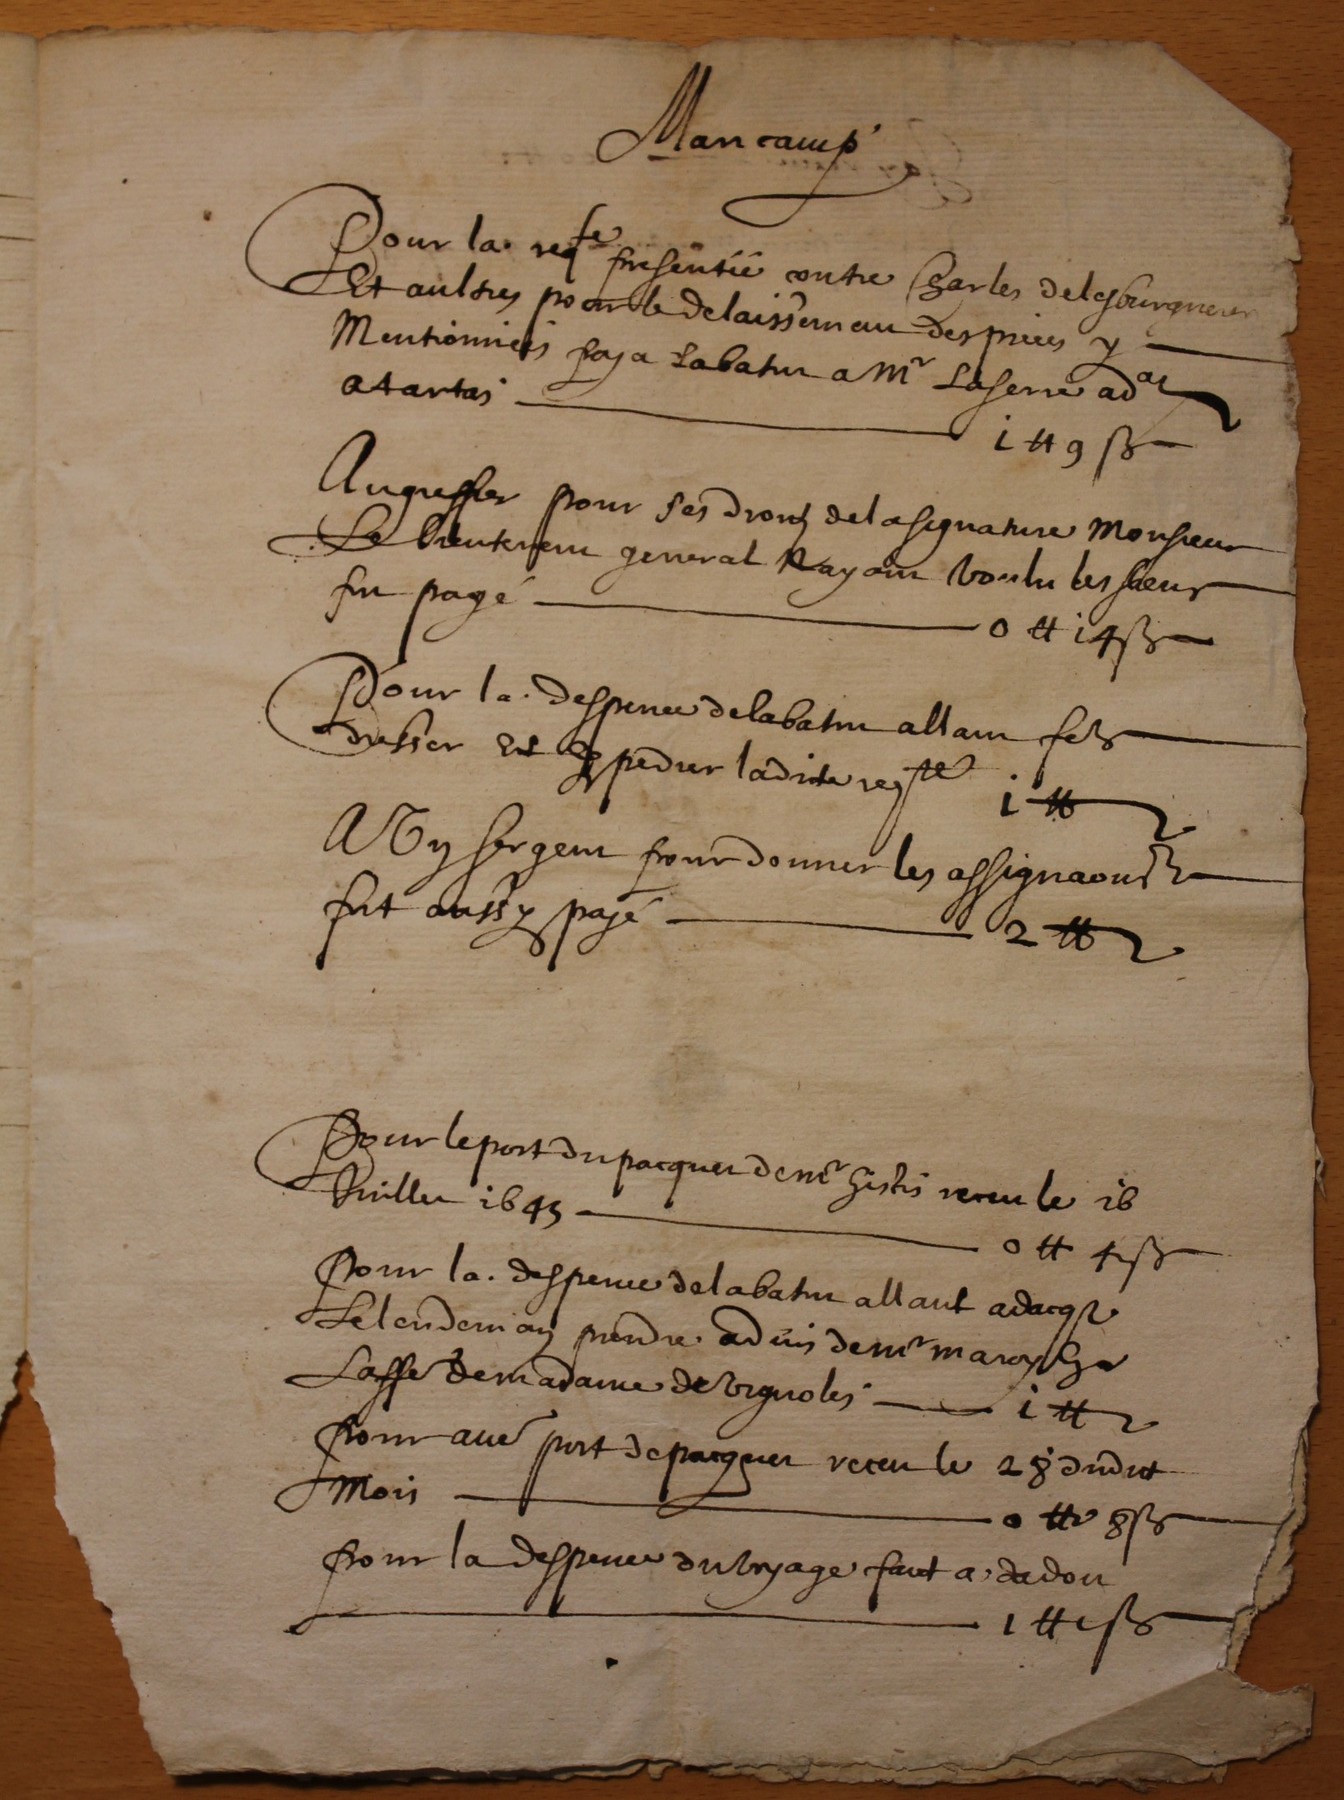 Mancamp
Pour la reqte presentée contre Charles de
Et aultres pour le delaissement des pieces y
Mentionnées paya Labatut a Mr Laserre adat
a tartas 1 ₶ 9 ß
Au greffier pour ses droitz de la signature Monsieur
Le Lieutenent general N'ayant Voulu les siens
fut payé 0 ₶ 14 ß
Pour la despence de Labatut allant fe
dresser Et Expedier ladite reqte 1 ₶
A Vn sergent pour donner les assignaons
fut aussy payé 2 ₶
Pour le port du pacquet de mr receu le 16
Juillet 1643 0 ₶ 4 ß
Pour la despence de Labatut allant a dacqs
Le lendemain prendre aduis de mr
Laffe de madame de Vignoles 1 ₶
Pour port de pacquet receu le 28 dudit
Mois 0 ₶ 8 ß
Pour la despence du Voyage faict a dadou
1 ₶ 1 ß